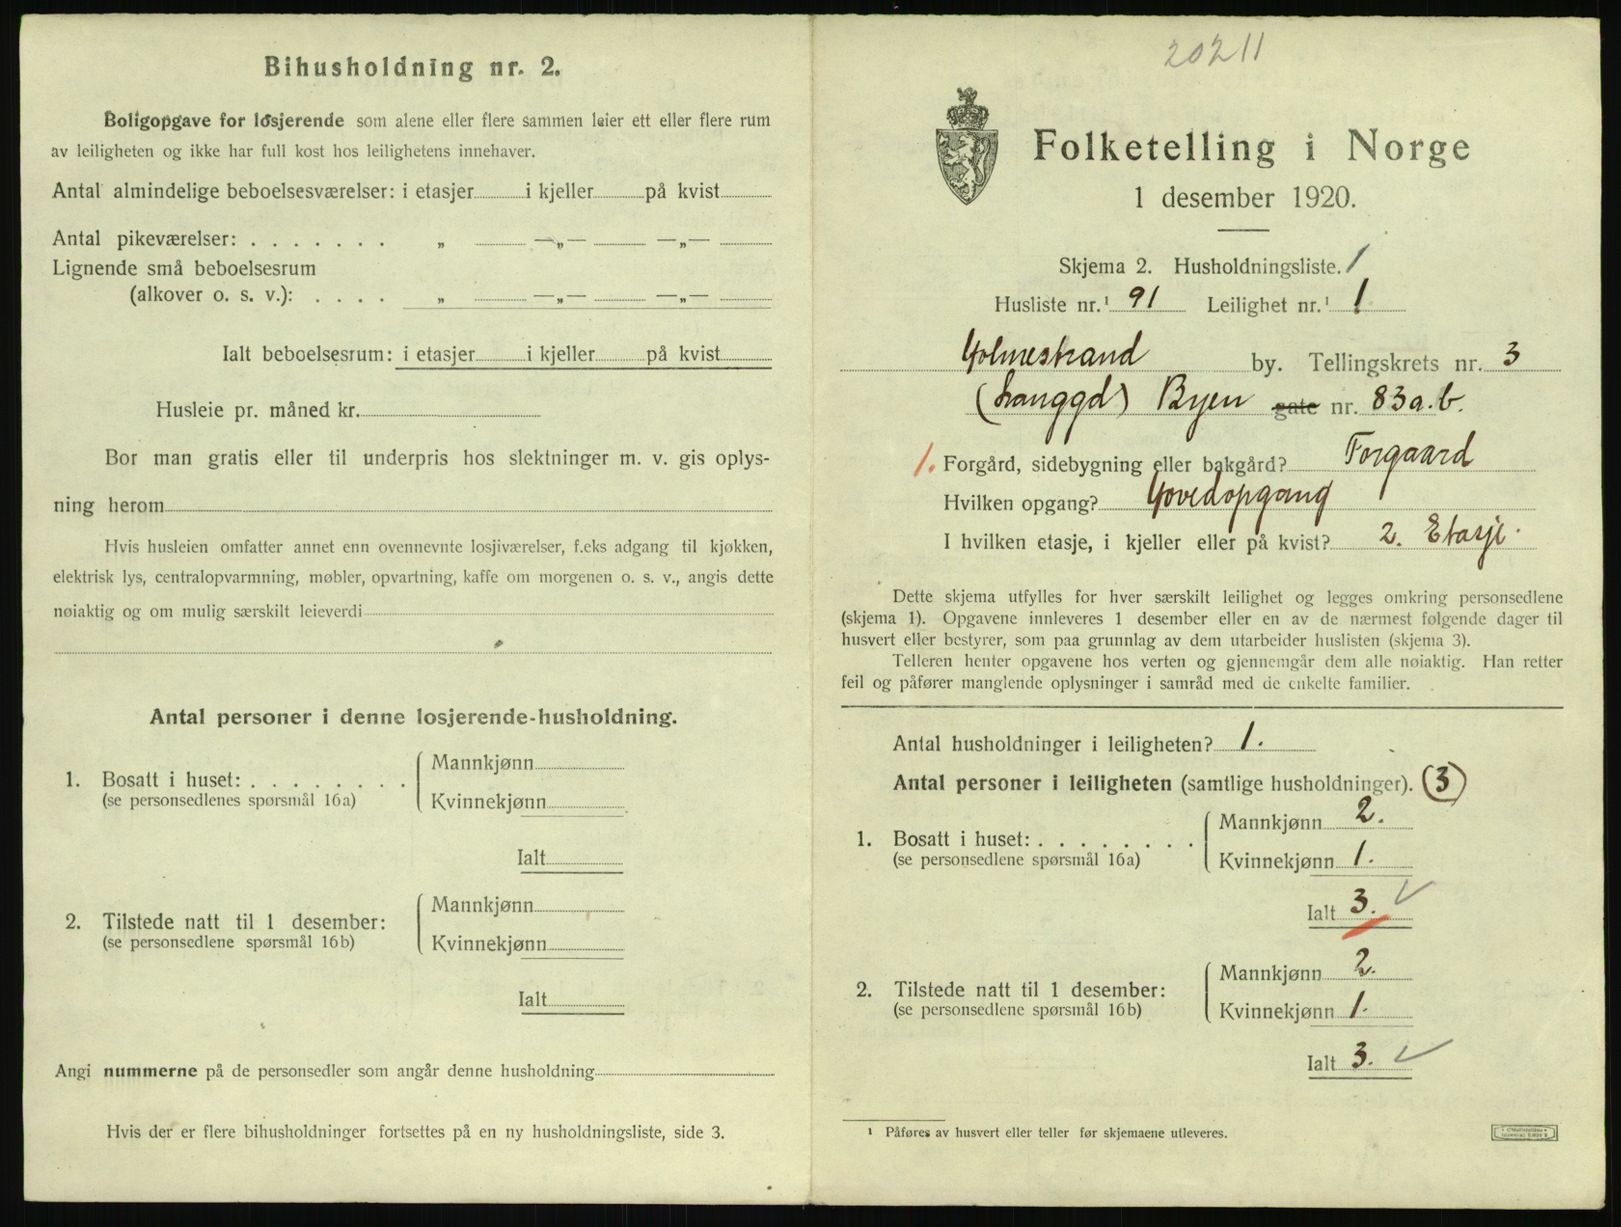 Bihusholdning nr. 2.
Boligopgave for losjerende som alene eller flere sammen leier ett eller flere rum
av leiligheten og ikke har full kost hos leilighetens innehaver.
Antal almindelige beboelsesværelser: i etasjer i kjeller på kvist
Antal pikeværelser: . . . . . . . „ —„— —„—
Lignende små beboelsesrum
(alkover o. s. v.): . . . . „ —„— —„—
Ialt beboelsesrum: i etasjer i kjeller på kvist
Husleie pr. måned kr.
Bor man gratis eller til underpris hos slektninger m. v. gis oplys-
ning herom
Hvis husleien omfatter annet enn ovennevnte losjiværelser, f.eks adgang til kjøkken,
elektrisk lys, centralopvarmning, møbler, opvartning, kaffe om morgenen o. s. v., angis dette
nøiaktig og om mulig særskilt leieverdi
Antal personer i denne losjerende-husholdning.
1. Bosatt i huset: . . . . . . . .
(se personsedlenes spørsmål 16a)
Mannkjønn
Kvinnekjønn
Ialt
2. Tilstede natt til 1 desember:
(se personsedlene spørsmål 16b)
Mannkjønn
Kvinnekjønn
Ialt
Angi nummerne på de personsedler som angår denne husholdning
Hvis der er flere bihusholdninger fortsettes på en ny husholdningsliste, side 3.
20211
Folketelling i Norge
1 desember 1920.
Skjema 2. Husholdningsliste. 1
Husliste nr.¹ 91 Leilighet nr.¹ 1
Holmestrand by. Tellingskrets nr. 3
(Langgd) Byen gate nr. 83a.b.
1. Forgård, sidebygning eller bakgård? Forgaard
Hvilken opgang? Hovedopgang
I hvilken etasje, i kjeller eller på kvist? 2. Etasje.
Dette skjema utfylles for hver særskilt leilighet og legges omkring personsedlene
(skjema 1). Opgavene innleveres 1 desember eller en av de nærmest følgende dager til
husvert eller bestyrer, som paa grunnlag av dem utarbeider huslisten (skjema 3).
Telleren henter opgavene hos verten og gjennemgår dem alle nøiaktig. Han retter
feil og påfører manglende oplysninger i samråd med de enkelte familier.
Antal husholdninger i leiligheten? 1.
Antal personer i leiligheten (samtlige husholdninger). (3)
1. Bosatt i huset: . . . . . . . .
(se personsedlene spørsmål 16a)
Mannkjønn 2.
Kvinnekjønn 1.
Ialt 3. ✓
2. Tilstede natt til 1 desember:
(se personsedlene spørsmål 16b)
Mannkjønn 2.
Kvinnekjønn 1.
Ialt 3. ✓
¹ Påføres av husvert eller teller før skjemaene utleveres.